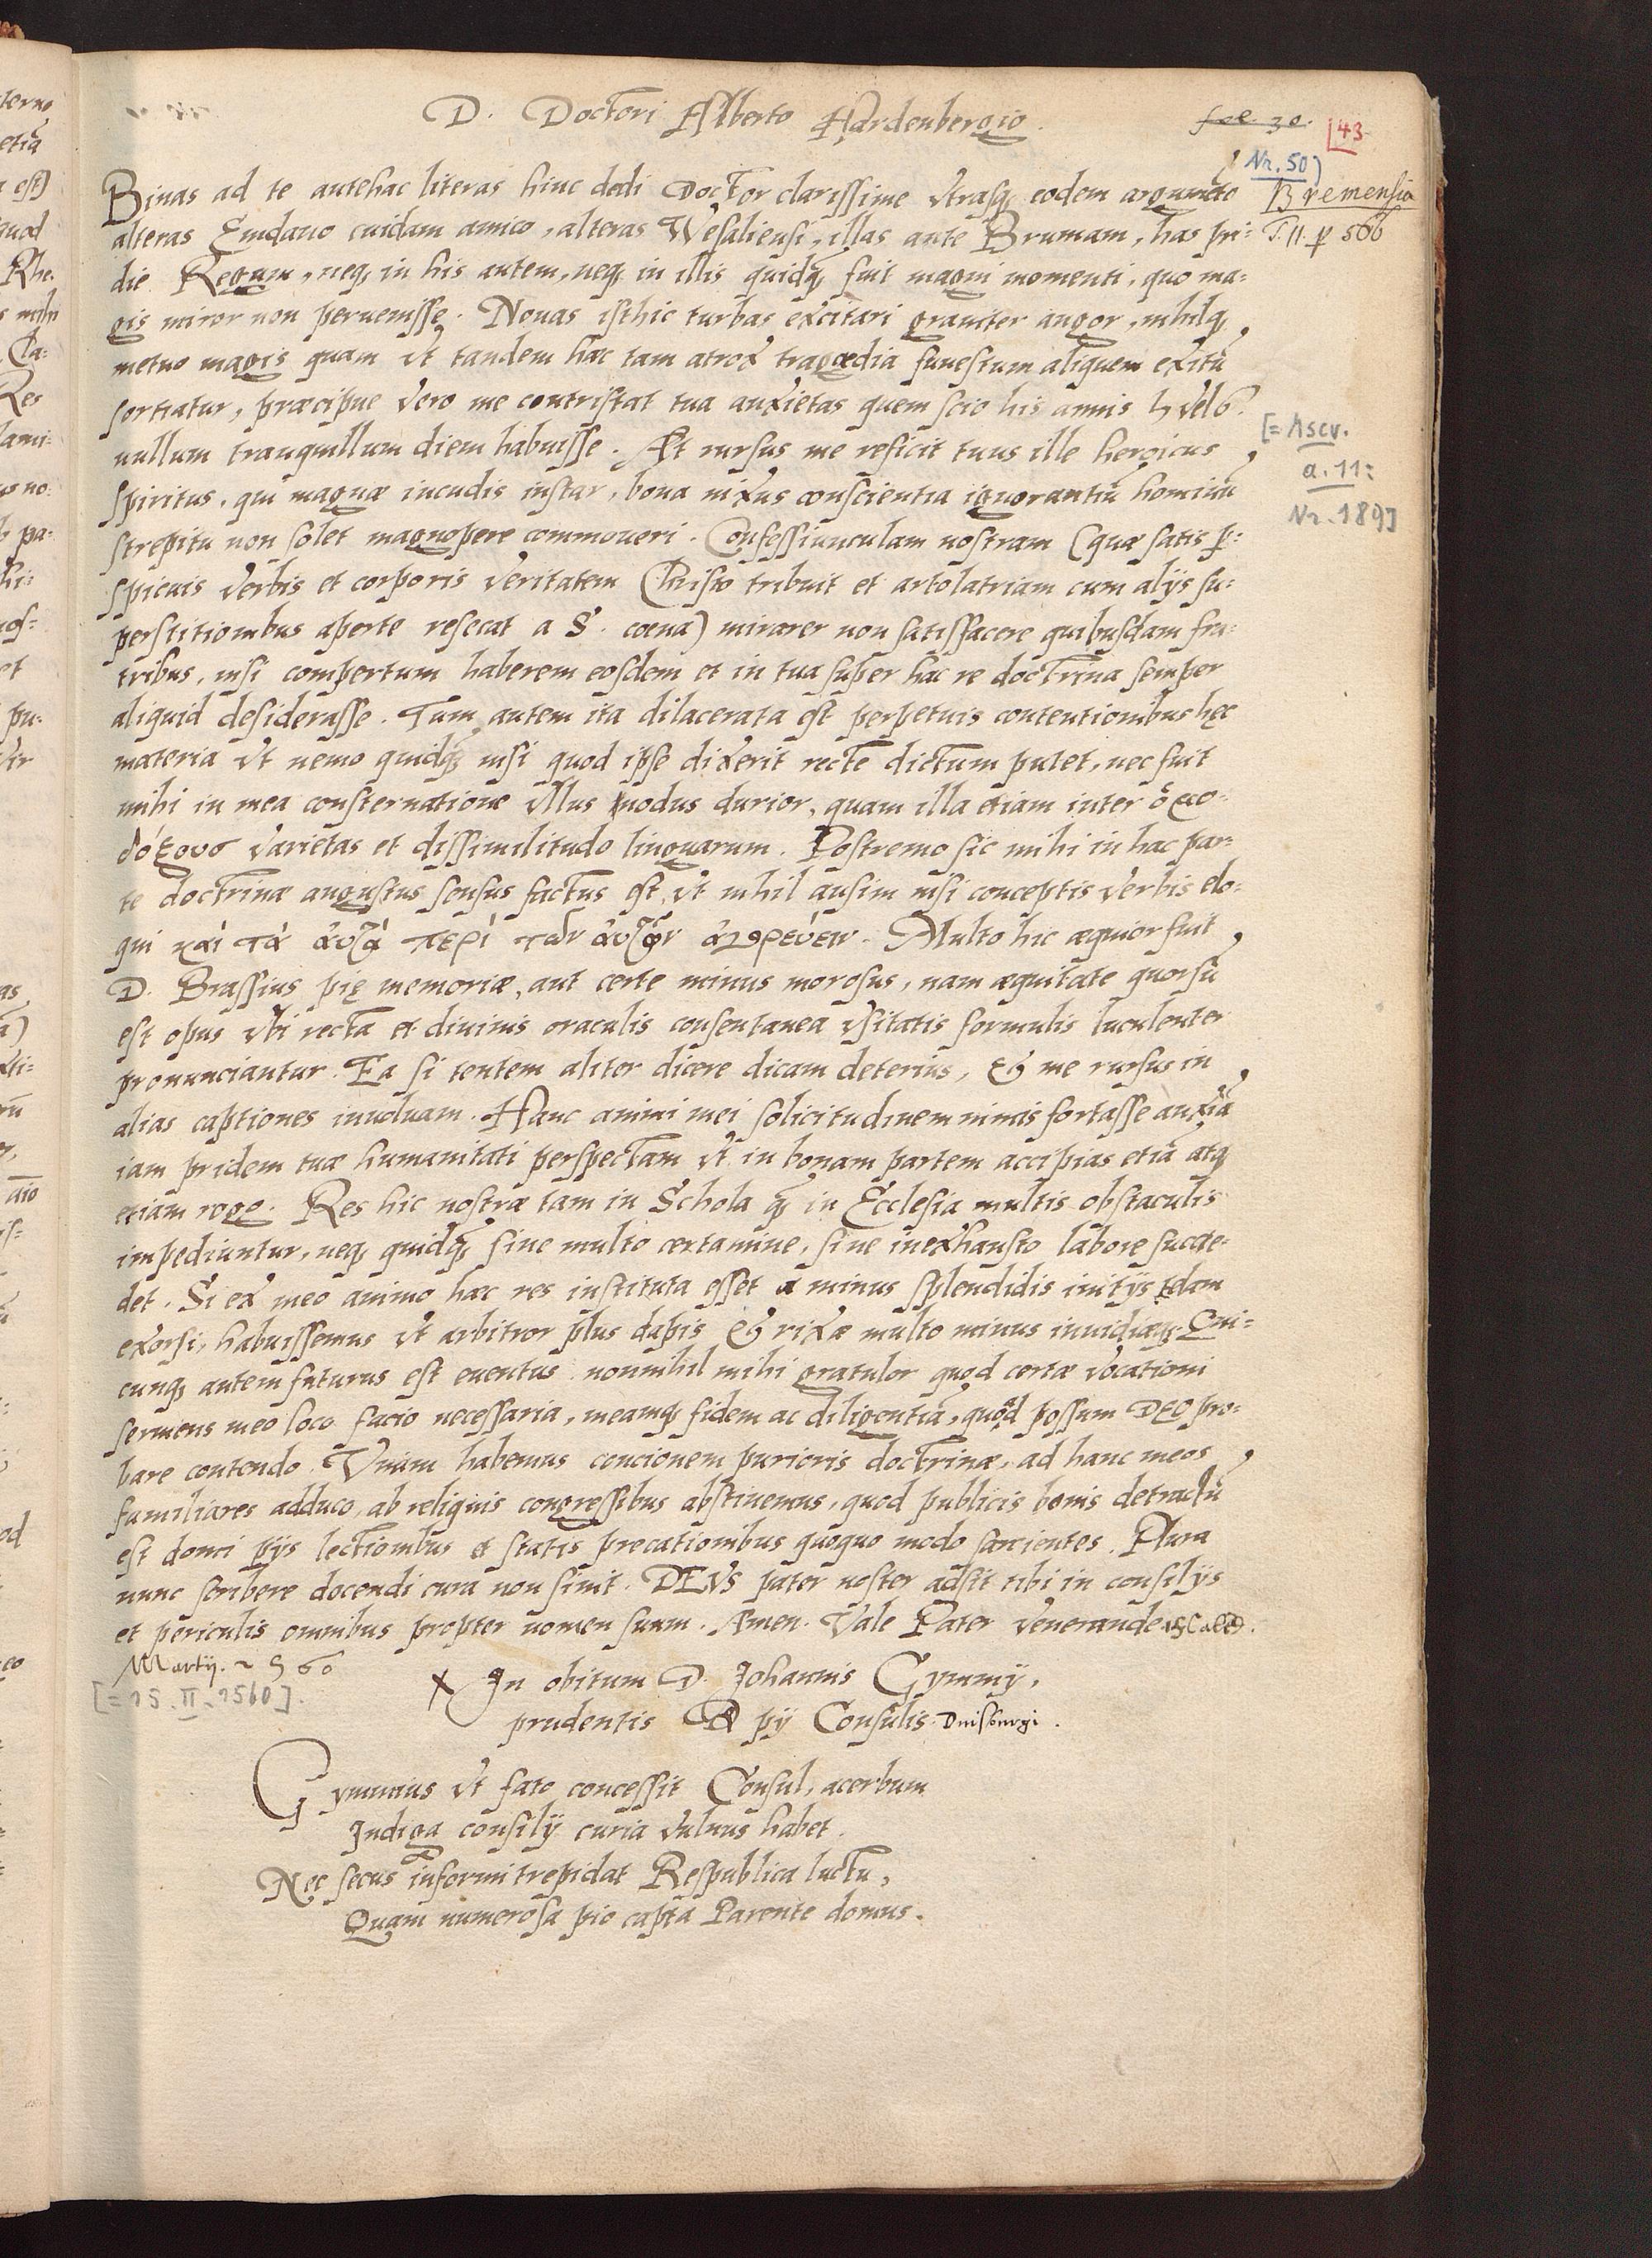 D. Doctori Alberto Hardenbergio.
fol. 30.
43
Nr. 50)
Bremensia
T. 11. p 566
Binas ad te antehac literas hinc dedi Doctor clarissime vtrasq; eodem argumēto
alteras Emdano cuidam amico, alteras Wesaliensi, illas ante Brumam, has pri-
die Regum, neq; in his autem, neq; in illis quidq; fuit magni momenti, quo ma-
gis miror non peruenisse. Nouas isthic turbas excitari grauiter angor, nihilq;
metuo magis quam vt tandem hæc tam atrox tragœdia funestum aliquem exitū
sortiatur, præcipue vero me contristat tua anxietas quem scio his annis 5 vel 6.
nullum tranquillum diem habuisse. At rursus me reficit tuus ille heroicus
[= Ascv.
a. 11:
Nr. 189]
spiritus, qui magnæ incudis instar, bona nixus conscientia ignorantiū hominū
strepitu non solet magnopere commoueri. Confessiunculam nostram (quæ satis p-
spicuis verbis et corporis veritatem Christo tribuit et artolatriam cum alijs su-
perstitionibus aperte resecat a S. coena) mirarer non satisfacere quibusdam fra-
tribus, nisi compertum haberem eosdem et in tua super hac re doctrina semper
aliquid desiderasse. Tum autem ita dilacerata est perpetuis contentionibus hęc
materia vt nemo quidq; nisi quod ipse dixerit recte dictum putet, nec fuit
mihi in mea consternatione vllus nodus durior, quam illa etiam inter ὀρθο-
δόξους varietas et dissimilitudo linguarum. Postremo sic mihi in hac par-
te doctrinæ angustus sensus factus est, vt nihil ausim nisi conceptis verbis elo-
qui καὶ τὰ αὐτὰ περὶ τῶν αὐτῶν ἀγορεύειν. Multo hic æquior fuit
D. Brassius pię memoriæ, aut certe minus morosus, nam æquitate quorsū
est opus vbi recta et diuinis oraculis consentanea vsitatis formulis luculenter
pronunciantur. Ea si tentem aliter dicere dicam deterius, & me rursus in
alias captiones inuoluam. Hanc animi mei solicitudinem nimis fortasse anxiā
iam pridem tuæ humanitati perspectam vt in bonam partem accipias etiā atq;
etiam rogo. Res hic nostræ tam in Schola q; in Ecclesia multis obstaculis
impediuntur, neq; quidq; sine multo certamine, sine inexhausto labore succe-
det. Si ex meo animo hæc res instituta esset a minus splendidis initijs telam
exorsi, habuissemus vt arbitror plus dapis & rixæ multo minus inuidiæq; Cui-
cunq; autem futurus est euentus nonnihil mihi gratulor quod certæ vocationi
seruiens meo loco facio necessaria, meamq; fidem ac diligentiā, quod possum DEO pro-
bare contendo. Vnam habemus concionem purioris doctrinæ, ad hanc meos
familiares adduco, ab reliquis congressibus abstinemus, quod publicis bonis detractū
est domi pijs lectionibus et statis precationibus quoquo modo sarcientes. Plura
nunc scribere docendi cura non sinit. DEVS pater noster adsit tibi in consilijs
et periculis omnibus propter nomen suum. Amen. Vale Pater venerande 15 Cal⟨⟩.
Martij. 1560
[= 15. II. 1560].
X In obitum D. Johannis Gymnij,
prudentis & pij Consulis Duisburgi.
Gymnius vt fato concessit Consul, acerbum
Indiga consilij curia vulnus habet.
Nec secus informi trepidat Respublica luctu,
Quam numerosa pio capta Parente domus.